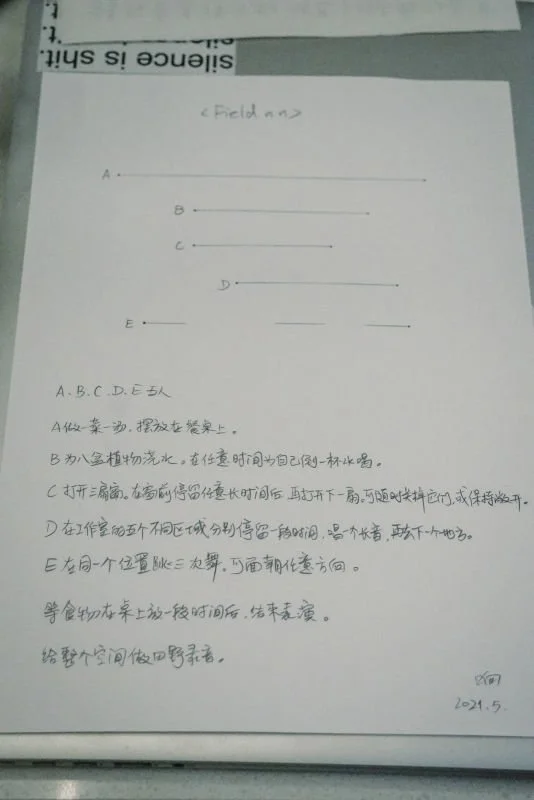 silence is shit.
<Field nn>
A
B
C
D
E
A.B.C.D.E 5人
A做一菜一汤,摆放在餐桌上。
B为八盆植物浇水。在任意时间为自己倒一杯水喝。
C打开三扇窗。在窗前停留任意长时间后,再打开下一扇,可随时关掉它们,或保持敞开。
D在工作室的五个不同区域分别停留一段时间,唱一个长音,再去下一个地方。
E在同一个位置跳三次舞,可面朝任意方向。
等食物在桌上放一段时间后,结束表演。
给整个空间做田野录音。
2021.5.